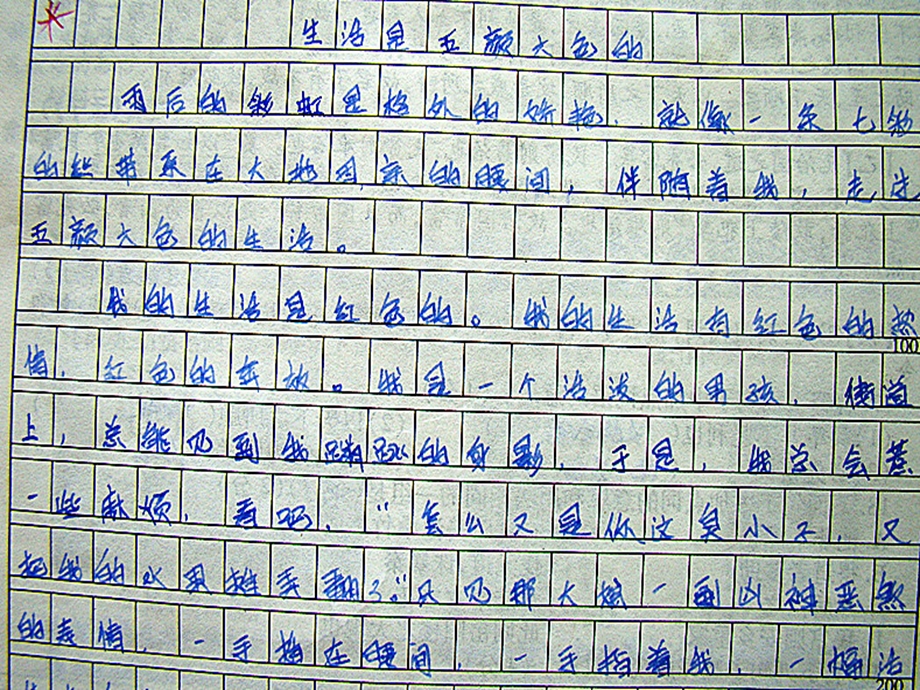 生活是五颜六色的
雨后的彩虹是格外的娇艳，就像一条七彩
的丝带系在大地母亲的腰间，伴随着我，走过
五颜六色的生活。
我的生活是红色的。我的生活有红色的热
100
情，红色的奔放。我是一个活泼的男孩，街道
上，总能见到我蹦跶的身影，于是，我总会惹
一些麻烦，看吗，“怎么又是你这臭小子，又
把我的水果摊弄翻了。”只见那大婶一副凶神恶煞
的表情，一手插在腰间，一手指着我，一幅活
200